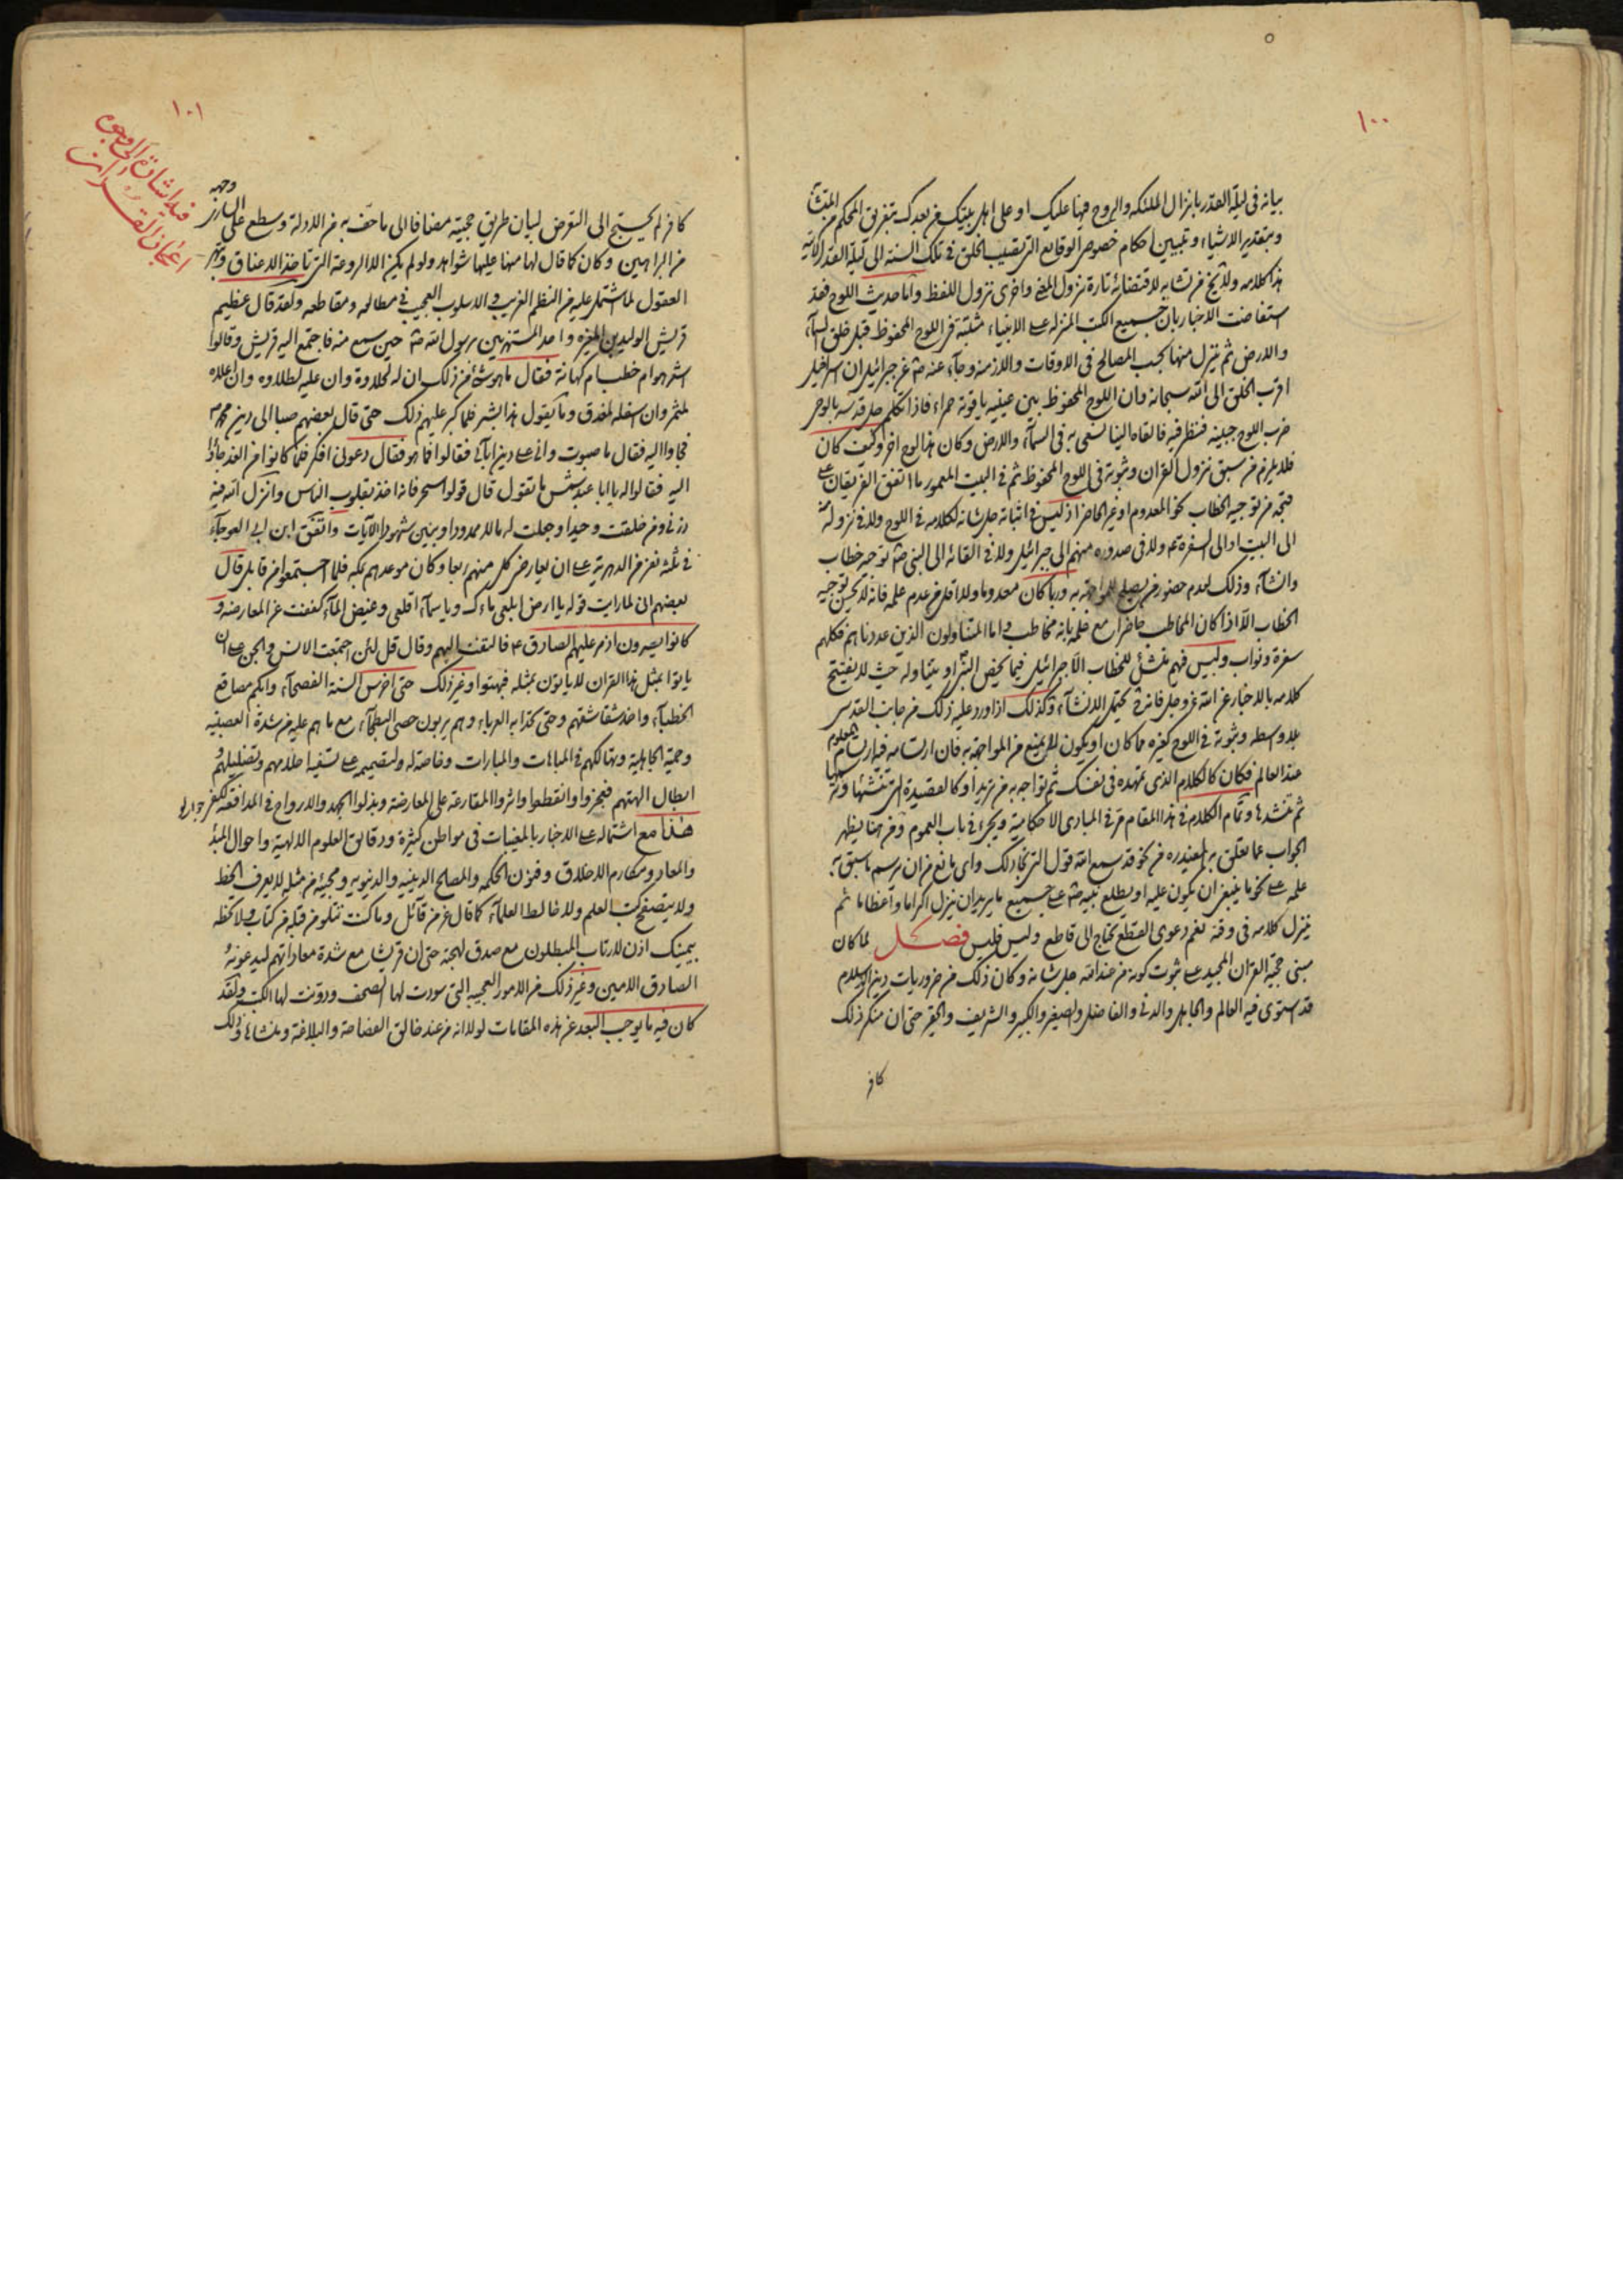 ١٠٠
بيانه في ليلة القدر بانزال الملئكة والروح فيها عليك او على اهل بيتك من بعدك بتفريق المحكم من المتشا
وبتقدير الاشياء وتبيين احكام خصوص الوقايع التي تصيب الخلق في تلك السنة الى ليلة القدر الآتية
هذا كلامه ولا يخ من تشابه لاقتضائه تارة نزول المعنى واخرى نزول اللفظ واما حديث اللوح فقد
استفاضت الاخبار بان جميع الكتب المنزلة على الانبياء مثبتة في اللوح المحفوظ قبل خلق السمآء
والارض ثم ينزل منها بحسب المصالح في الاوقات والازمنة وجآء عنه ص عن جبرائيل ان اسرافيل
اقرب الخلق الى الله سبحانه وان اللوح المحفوظ بين عينيه ياقوتة حمراء فاذا تكلم جل قدسه بالوحي
ضرب اللوح جبينه فنظر فيه فالقاه الينا نسعى به في السمآء والارض وكان هذا لوح اخر وكيف كان
فلا يلزم من سبق نزول القران وثبوته في اللوح المحفوظ ثم في البيت المعمور ما اتفق الفريقان على
قبحه من توجيه الخطاب نحو المعدوم او غير الحاضر اذ ليس في اثباته جل شانه لكلامه في اللوح ولا في نزوله منه
الى البيت او الى السفرة ثم ولا في صدوره منهم الى جبرائيل ولا في القائه الى النبي ص توجه خطاب
وانشآء وذلك لعدم حضور من يصلح للمواجهة به وربما كان معدوما ولا اقل من عدم علمه فانه لا يحسن توجيه
الخطاب الا اذا كان المخاطب حاضرا مع علمه بانه مخاطب واما المتناولون الذين عددناهم فكلهم
سفرة ونواب وليس فيهم منشئ للخطاب الا جبرائيل فيما يخص النبي او يتناوله حيث لا يفتتح
كلامه بالاخبار عن الله عز وجل فانه ح يحتمل الانشآء وكذلك اذا اورد عليه ذلك من جانب القدس
بلا واسطة وثبوته في اللوح كغيره مما كان او يكون لا يمنع من المواجهة به فان ارتسامه فيه ارتسام المعلوم
عند العالم فكان كالكلام الذي تمهده في نفسك ثم تواجه به من تريد او كالقصيدة التي تنشئها وترتبها
ثم تنشدها وتمام الكلام في هذا المقام مر في المبادى الاحكامية ويجئ في باب العموم ومن هنا يظهر
الجواب عما تعلق به المعتذر من نحو قد سمع الله قول التي تجادلك واي مانع من ان يرسم ما سبق به
علمه على نحو ما ينبغي ان يكون عليه او يطلع نبيه ص على جميع ما يريد ان ينزل اكراما واعظاما ثم
ينزل كلامه في وقته نعم دعوى القطع تحتاج الى قاطع وليس فليس فصل لما كان
مبنى حجية القران المجيد على ثبوت كونه من عند الله جل شانه وكان ذلك من ضروريات دين الاسلام
قد استوى فيه العالم والجاهل والدني والفاضل والصغير والكبير والشريف والحقير حتى ان منكر ذلك
كافر
١٠١
فيه اشارة الى وجوه
اعجاز القران
كافر لم يحتج الى التعرض لبيان طريق حجيته مضافا الى ما حف به من الادلة وسطع على اسارير وجهه
من البراهين وكان كما قال لها منها عليها شواهد ولو لم يكن الا الروعة التي تاخذ الاعناق وتبهر
العقول لما اشتمل عليه من النظم الغريب والاسلوب العجيب في مطالعه ومقاطعه ولقد قال عظيم
قريش الوليد بن المغيرة واحد المستهزئين برسول الله ص حين سمع منه فاجتمع اليه قريش وقالوا
اشعر هو ام خطب ام كهانة فقال ما هو شئ من ذلك وان له لحلاوة وان عليه لطلاوة وان اعلاه
لمثمر وان اسفله لمغدق وما يقول هذا بشر فلما كبر عليهم ذلك حتى قال بعضهم صبا الى دين محمد ص
فجاوا اليه فقال ما صبوت واني على دين ابآئي فقالوا فما هو فقال دعوني افكر فلما كانوا من الغد جاؤا
اليه فقالوا له يا ابا عبد شمس ما تقول قال قولوا سحر فانه اخذ بقلوب الناس وانزل الله فيه
ذرني ومن خلقت وحيدا وجعلت له مالا ممدودا وبنين شهودا الآيات واتفق ابن ابي العوجآء
في ثلثة نفر من الدهرية على ان يعارض كل منهم ربعا وكان موعدهم بمكة فلما اجتمعوا من قابل قال
بعضهم اني لما رايت قوله يا ارض ابلعي ماءك ويا سمآء اقلعي وغيض المآء كففت عن المعارضة و
كانوا يسرون اذ مر عليهم الصادق ع فالتفت اليهم وقال قل لئن اجتمعت الانس والجن على ان
ياتوا بمثل هذا القران لا ياتون بمثله فبهتوا وغير ذلك حتى اخرس السنة الفصحآء وابكم مصاقع
الخطبآء واخمد شقاشقهم وحتى تحدا به العرباء وهم يربون حصى البطحآء مع ما هم عليه من شدة العصبية
وحمية الجاهلية وتهالكهم في المباهات والمبارات وخاصة له ولتصميمه على تسفيه احلامهم وتضليلهم
ابطال الهتهم فعجزوا وانقطعوا واثروا المقارعة على المعارضة وبذلوا المهج والارواح في المدافعة
هذا مع اشتماله على الاخبار بالمغيبات في مواطن كثيرة ودقايق العلوم الالهية واحوال المبدأ
والمعاد ومكارم الاخلاق وفنون الحكمة والمصالح الدينية والدنيوية ومجيئه من مثله لا يعرف الخط
ولا يتصفح كتب العلم ولا خالط العلمآء كما قال عز من قآئل وما كنت تتلو من قبله من كتاب ولا تخطه
بيمينك اذن لارتاب المبطلون مع صدق لهجته حتى ان قريشا مع شدة معاداتهم له يدعونه
الصادق الامين وغير ذلك من الامور العجيبة التي سودت لها الصحف ودونت لها الكتب ولقد
كان فيه ما يوجب البعد عن هذه المقامات لولا انه من عند خالق الفصاحة والبلاغة ومنشاها وذلك